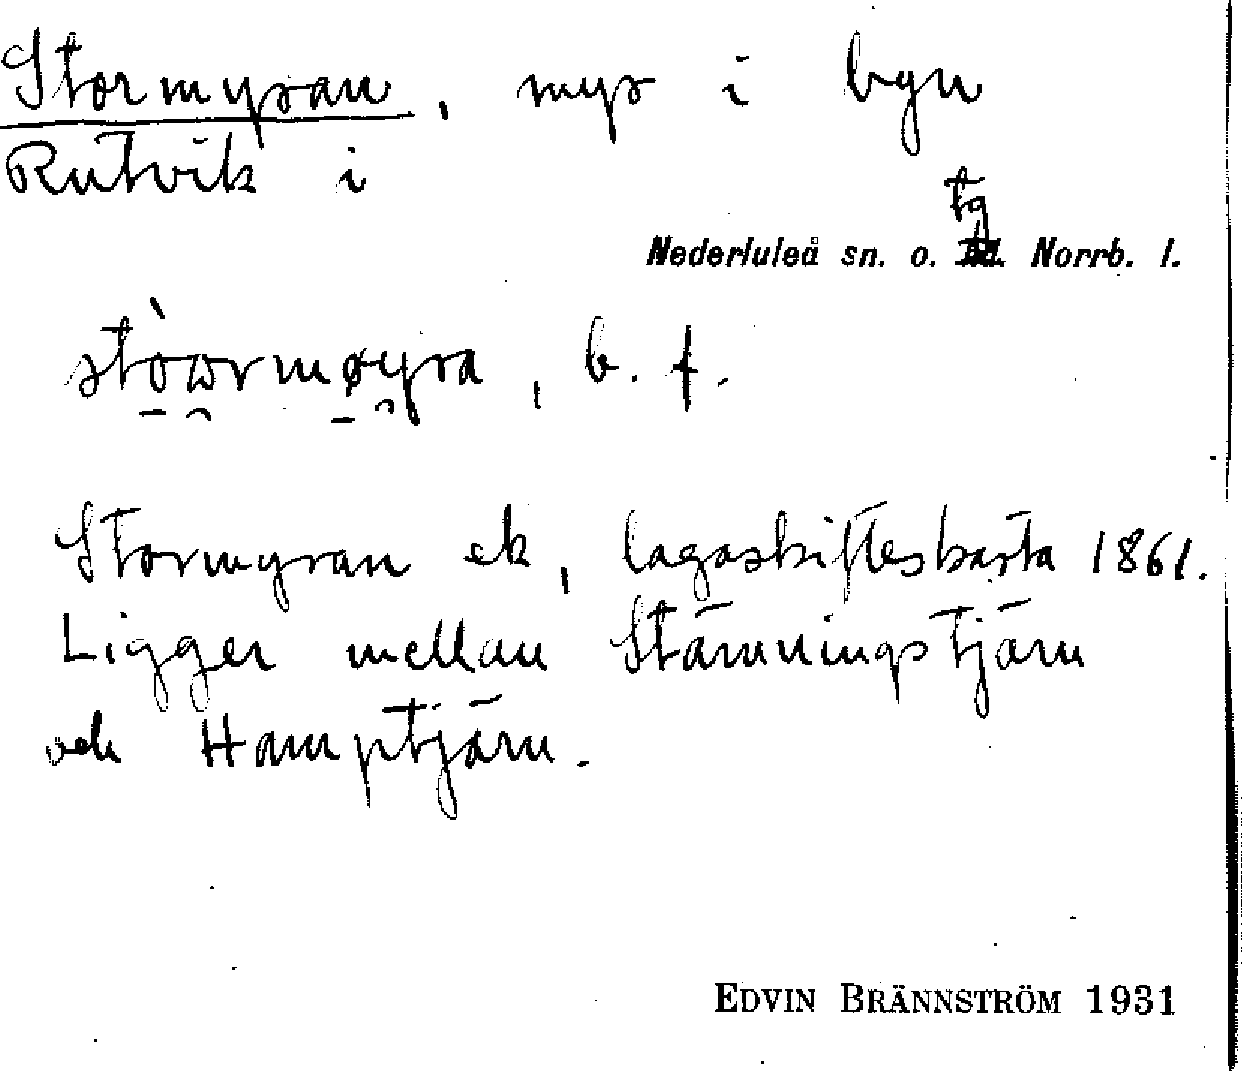 Stormyran, myr i byn
Rutvik i
tg
Nederluleå sn. o. Norrb. l.
stòωrmøyra, b. f.
Stormyran ek, lagaskifteskarta 1861.
Ligger mellan Stämningstjärn
och Hamptjärn.
EDVIN BRÄNNSTRÖM 1931